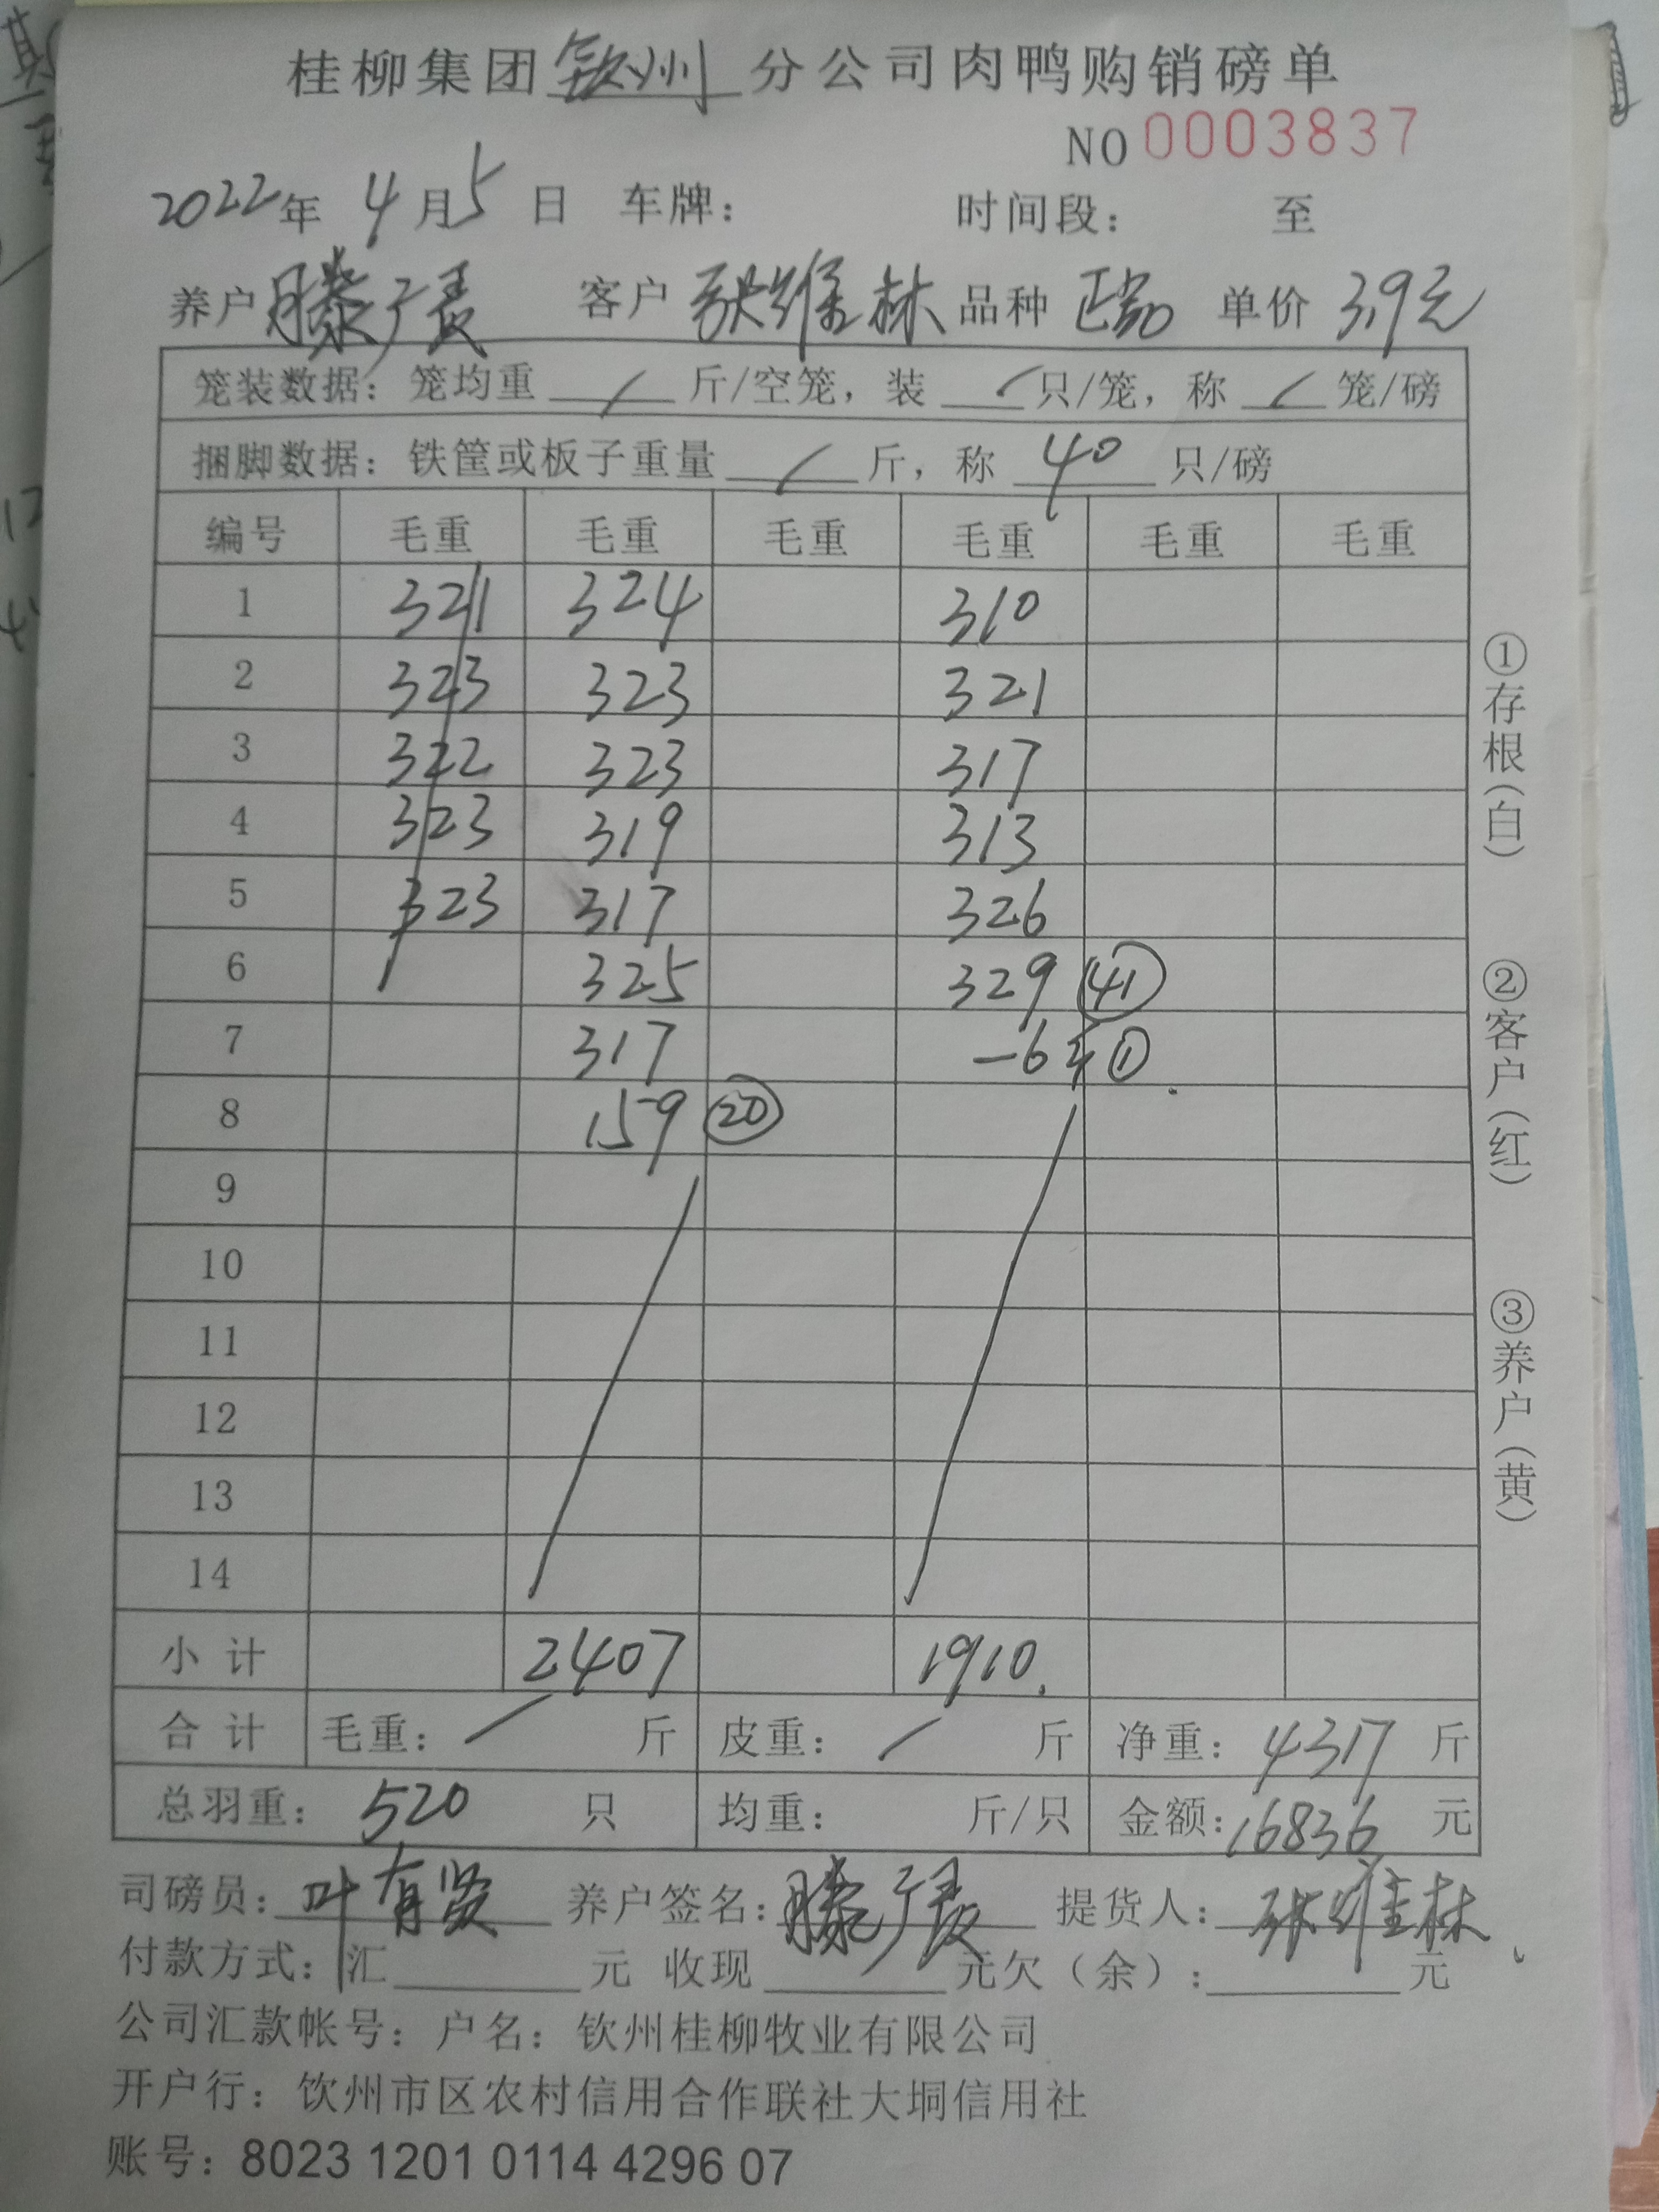 桂柳集团钦州分公司肉鸭购销磅单
NO 0003837
2022年 4月5日 车牌： 时间段： 至
养户 滕广表 客户 张维林 品种 正常 单价 3.9元
笼装数据：笼均重 / 斤/空笼，装 / 只/笼，称 / 笼/磅
捆脚数据：铁筐或板子重量 / 斤，称 40 只/磅
编号 毛重 毛重 毛重 毛重 毛重 毛重
1 321 324 310
2 323 323 321
3 322 323 317
4 323 319 313
5 323 317 326
6 325 329 ㊶
7 317 -6斤 ①
8 159 ⑳
9
10
11
12
13
14
小计 2407 1910.
合计 毛重： / 斤 皮重： / 斤 净重：4317 斤
总羽重：520 只 均重： 斤/只 金额：16836 元
司磅员：叶有贤 养户签名：滕广表 提货人：张维林
付款方式：汇 元 收现 元欠（余）： 元
公司汇款帐号：户名：钦州桂柳牧业有限公司
开户行：饮州市区农村信用合作联社大垌信用社
账号：8023 1201 0114 4296 07
①存根（白）
②客户（红）
③养户（黄）